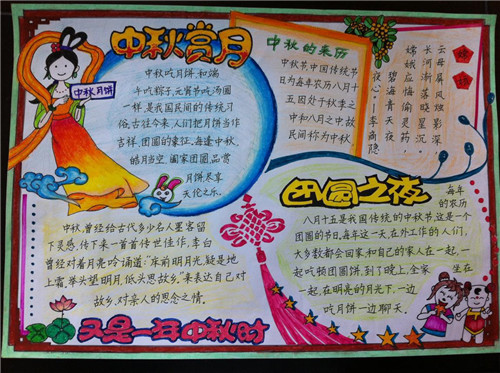 中秋赏月
中秋月饼
中秋吃月饼,和端
午吃粽子,元宵节吃汤圆
一样,是我国民间的传统习
俗。古往今来,人们把月饼当作
吉祥、团圆的象征。每逢中秋,
皓月当空,阖家团圆,品赏
月饼尽享
天伦之乐。
中秋的来历
中秋节中国传统节
日为每年农历八月十
五因处于秋季之
中和八月之中故
民间称为中秋
嫦娥
云母屏风烛影深,
长河渐落晓星沉。
嫦娥应悔偷灵药,
碧海青天夜
夜心——李商隐
中秋,曾经给古代多少名人墨客留
下灵感,传下来一首首传世佳作,李白
曾经对着月亮吟诵道:“床前明月光,疑是地
上霜,举头望明月,低头思故乡。”来表达自己对
故乡、对亲人的思念之情。
团圆之夜
每年
的农历
八月十五是我国传统的中秋节,这是一个
团圆的节日。每年这一天,在外工作的人们,
大多数都会回家,和自己的家人在一起,一
起吃顿团圆饼,到了晚上,全家坐在
一起,在明亮的月光下,一边
吃月饼一边聊天。
又是一年中秋时